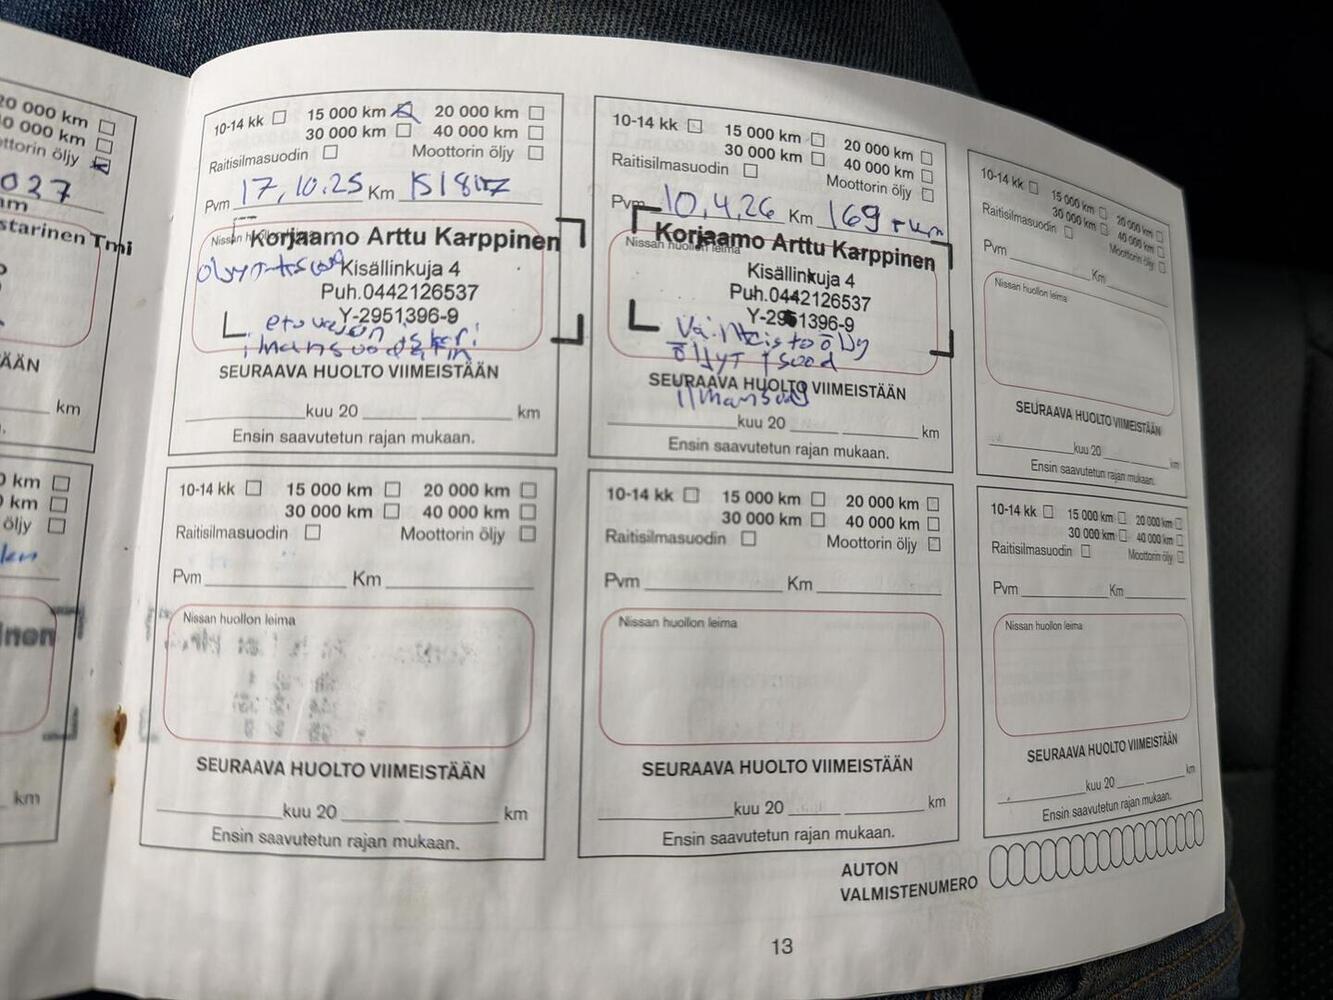 20 000 km
40 000 km
Moottorin öljy
027
km
starinen Tmi
ÄÄN
km
km
km
öljy
km
inen
km
10-14 kk 15 000 km 20 000 km
30 000 km 40 000 km
Raitisilmasuodin Moottorin öljy
Pvm 17,10.25 Km
Nissan huollon leima
Korjaamo Arttu Karppinen
Kisällinkuja 4
Puh.0442126537
Y-2951396-9
etuvasen
SEURAAVA HUOLTO VIIMEISTÄÄN
kuu 20 km
Ensin saavutetun rajan mukaan.
10-14 kk 15 000 km 20 000 km
30 000 km 40 000 km
Raitisilmasuodin Moottorin öljy
Pvm 10,4,26 Km 169 tkm
Nissan huollon leima
Korjaamo Arttu Karppinen
Kisällinkuja 4
Puh.0442126537
Y-2951396-9
öljyt
SEURAAVA HUOLTO VIIMEISTÄÄN
kuu 20 km
Ensin saavutetun rajan mukaan.
10-14 kk 15 000 km 20 000 km
30 000 km 40 000 km
Raitisilmasuodin Moottorin öljy
Pvm Km
Nissan huollon leima
SEURAAVA HUOLTO VIIMEISTÄÄN
kuu 20 km
Ensin saavutetun rajan mukaan.
10-14 kk 15 000 km 20 000 km
30 000 km 40 000 km
Raitisilmasuodin Moottorin öljy
Pvm Km
Nissan huollon leima
SEURAAVA HUOLTO VIIMEISTÄÄN
kuu 20 km
Ensin saavutetun rajan mukaan.
10-14 kk 15 000 km 20 000 km
30 000 km 40 000 km
Raitisilmasuodin Moottorin öljy
Pvm Km
Nissan huollon leima
SEURAAVA HUOLTO VIIMEISTÄÄN
kuu 20 km
Ensin saavutetun rajan mukaan.
10-14 kk 15 000 km 20 000 km
30 000 km 40 000 km
Raitisilmasuodin Moottorin öljy
Pvm Km
Nissan huollon leima
SEURAAVA HUOLTO VIIMEISTÄÄN
kuu 20 km
Ensin saavutetun rajan mukaan.
AUTON
VALMISTENUMERO
13